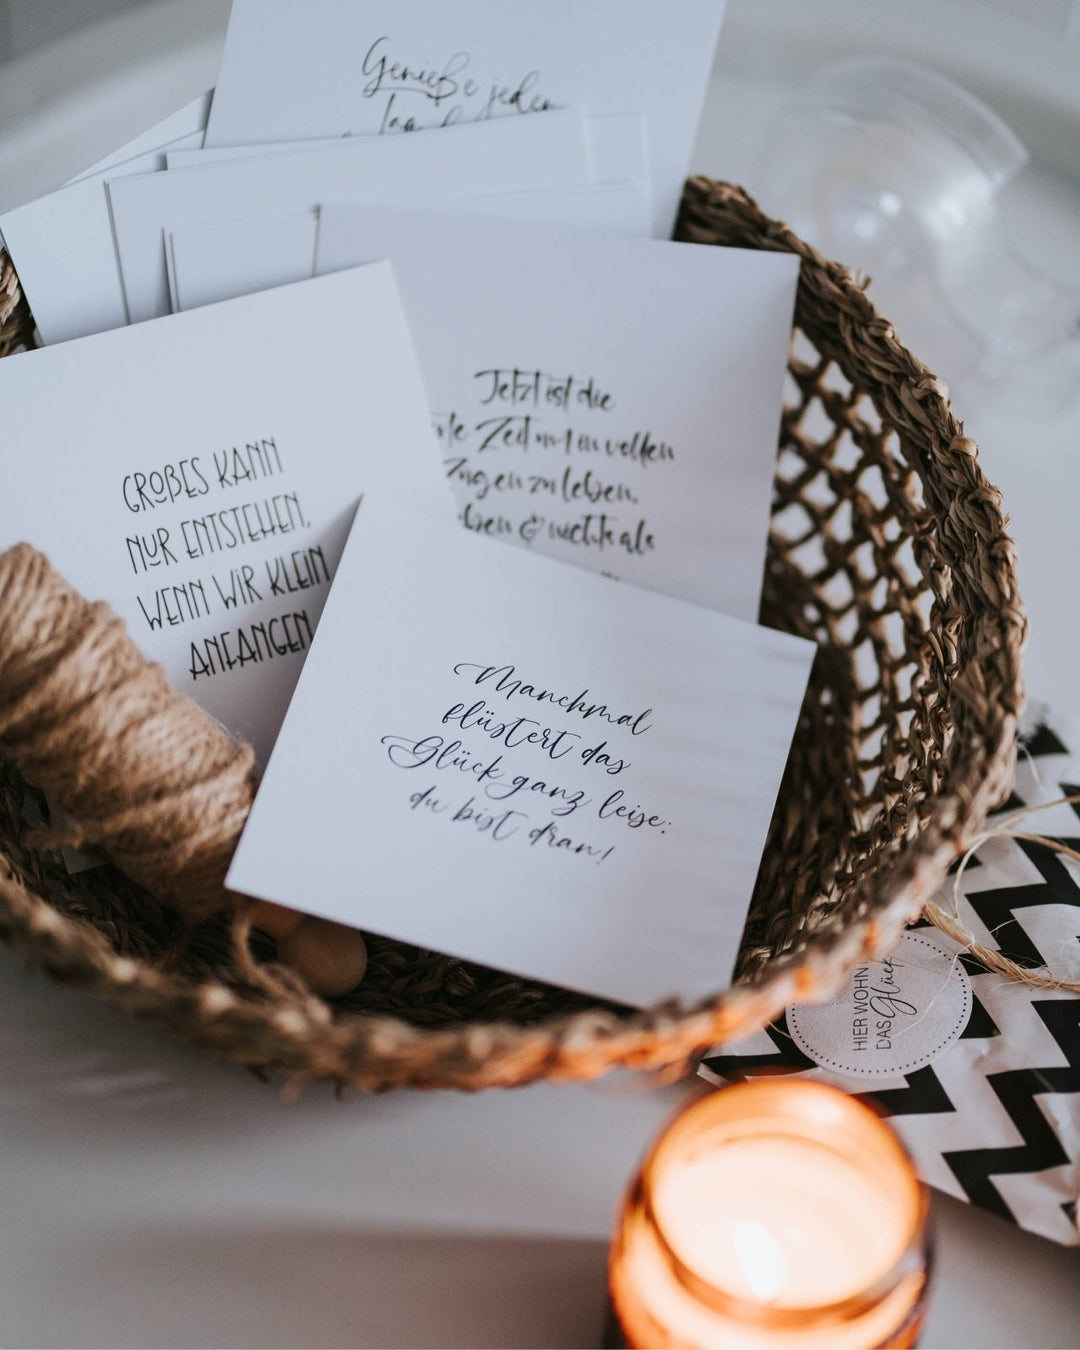 Genieße jeden
Tag
Jetzt ist die
Zeit um in vollen
Zügen zu leben,
& nichts als
GROßES KANN
NUR ENTSTEHEN,
WENN WIR KLEIN
ANFANGEN
Manchmal
flüstert das
Glück ganz leise:
du bist dran!
HIER WOHN
DAS Glück